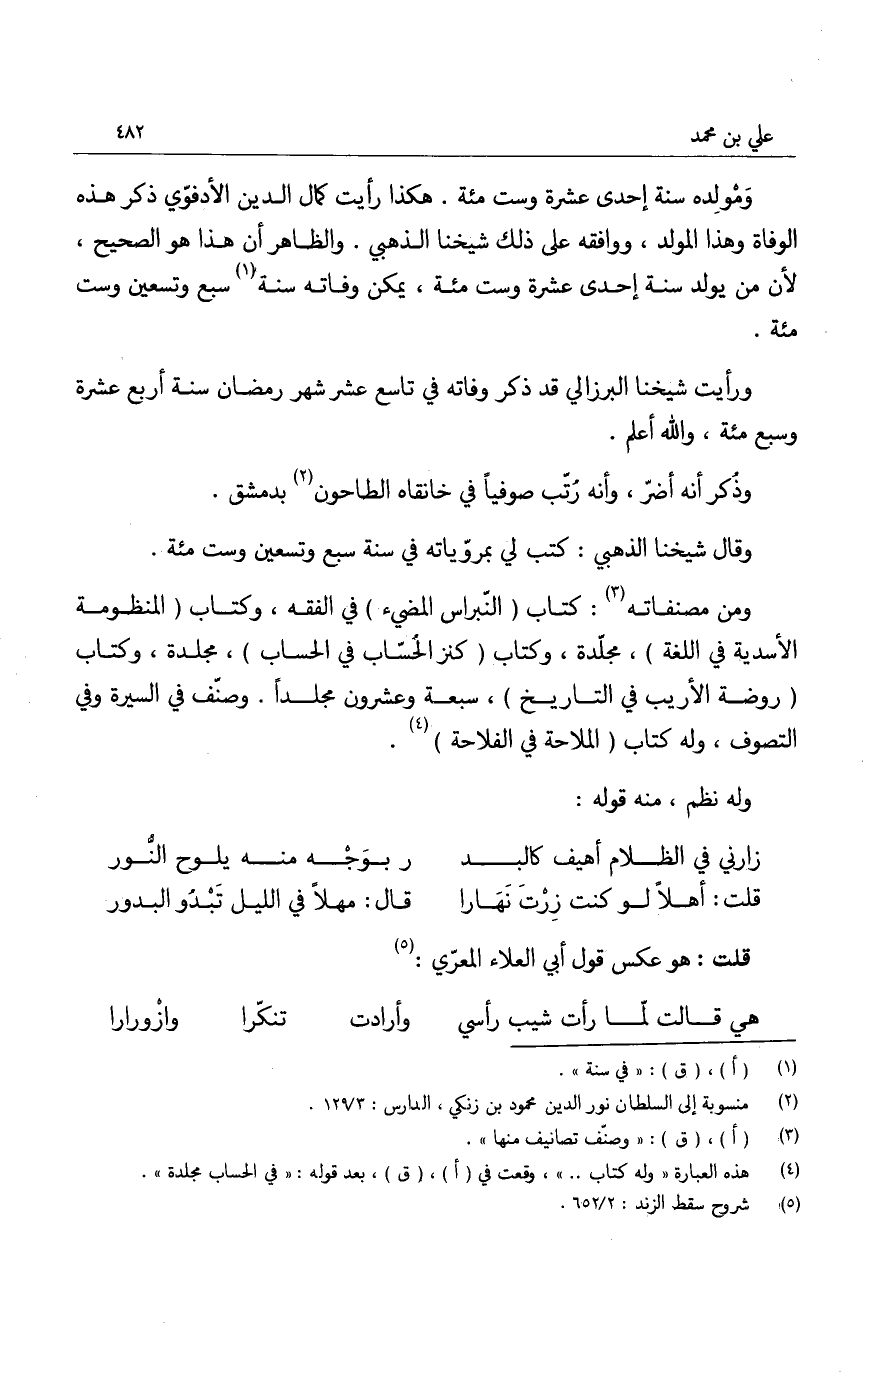 علي بن محمد ٤٨٢
وَمْولِده سنة إحدى عشرة وست مئة . هكذا رأيت كمال الدين الأدفوّي ذكر هذه
الوفاة وهذا المولد ، ووافقه على ذلك شيخنا الذهبي . والظاهر أن هذا هو الصحيح ،
لأن من يولد سنة إحدى عشرة وست مئة ، يمكن وفاته سنة(١) سبع وتسعين وست
مئة .
ورأيت شيخنا البرزالي قد ذكر وفاته في تاسع عشر شهر رمضان سنة أربع عشرة
وسبع مئة ، والله أعلم .
وذُكر أنه أضرّ ، وأنه رُتّب صوفياً في خانقاه الطاحون(٢) بدمشق .
وقال شيخنا الذهبي : كتب لي بمروّياته في سنة سبع وتسعين وست مئة .
ومن مصنفاته(٣) : كتاب ( النّبراس المضيء ) في الفقه ، وكتاب ( المنظومة
الأسدية في اللغة ) ، مجلّدة ، وكتاب ( كنز الحُسّاب في الحساب ) ، مجلدة ، وكتاب
( روضة الأريب في التاريخ ) ، سبعة وعشرون مجلداً . وصنّف في السيرة وفي
التصوف ، وله كتاب ( الملاحة في الفلاحة )(٤) .
وله نظم ، منه قوله :
زارني في الظلام أهيف كالبد ر بوَجْه منه يلوح النُّور
قلت : أهلاً لو كنت زِرْتَ نَهَارا قال : مهلاً في الليل تَبْدُو البدور
قلت : هو عكس قول أبي العلاء المعرّي :(٥)
هي قالت لمّا رأت شيب رأسي وأرادت تنكّرا وازْورارا
(١) ( أ ) ، ( ق ) : « في سنة » .
(٢) منسوبة إلى السلطان نور الدين محمود بن زنكي ، الدارس : ١٢٩/٣ .
(٣) ( أ ) ، ( ق ) : « وصنّف تصانيف منها » .
(٤) هذه العبارة « وله كتاب .. » ، وقعت في ( أ ) ، ( ق ) ، بعد قوله : « في الحساب مجلدة » .
(٥) شروح سقط الزند : ٦٥٢/٢ .